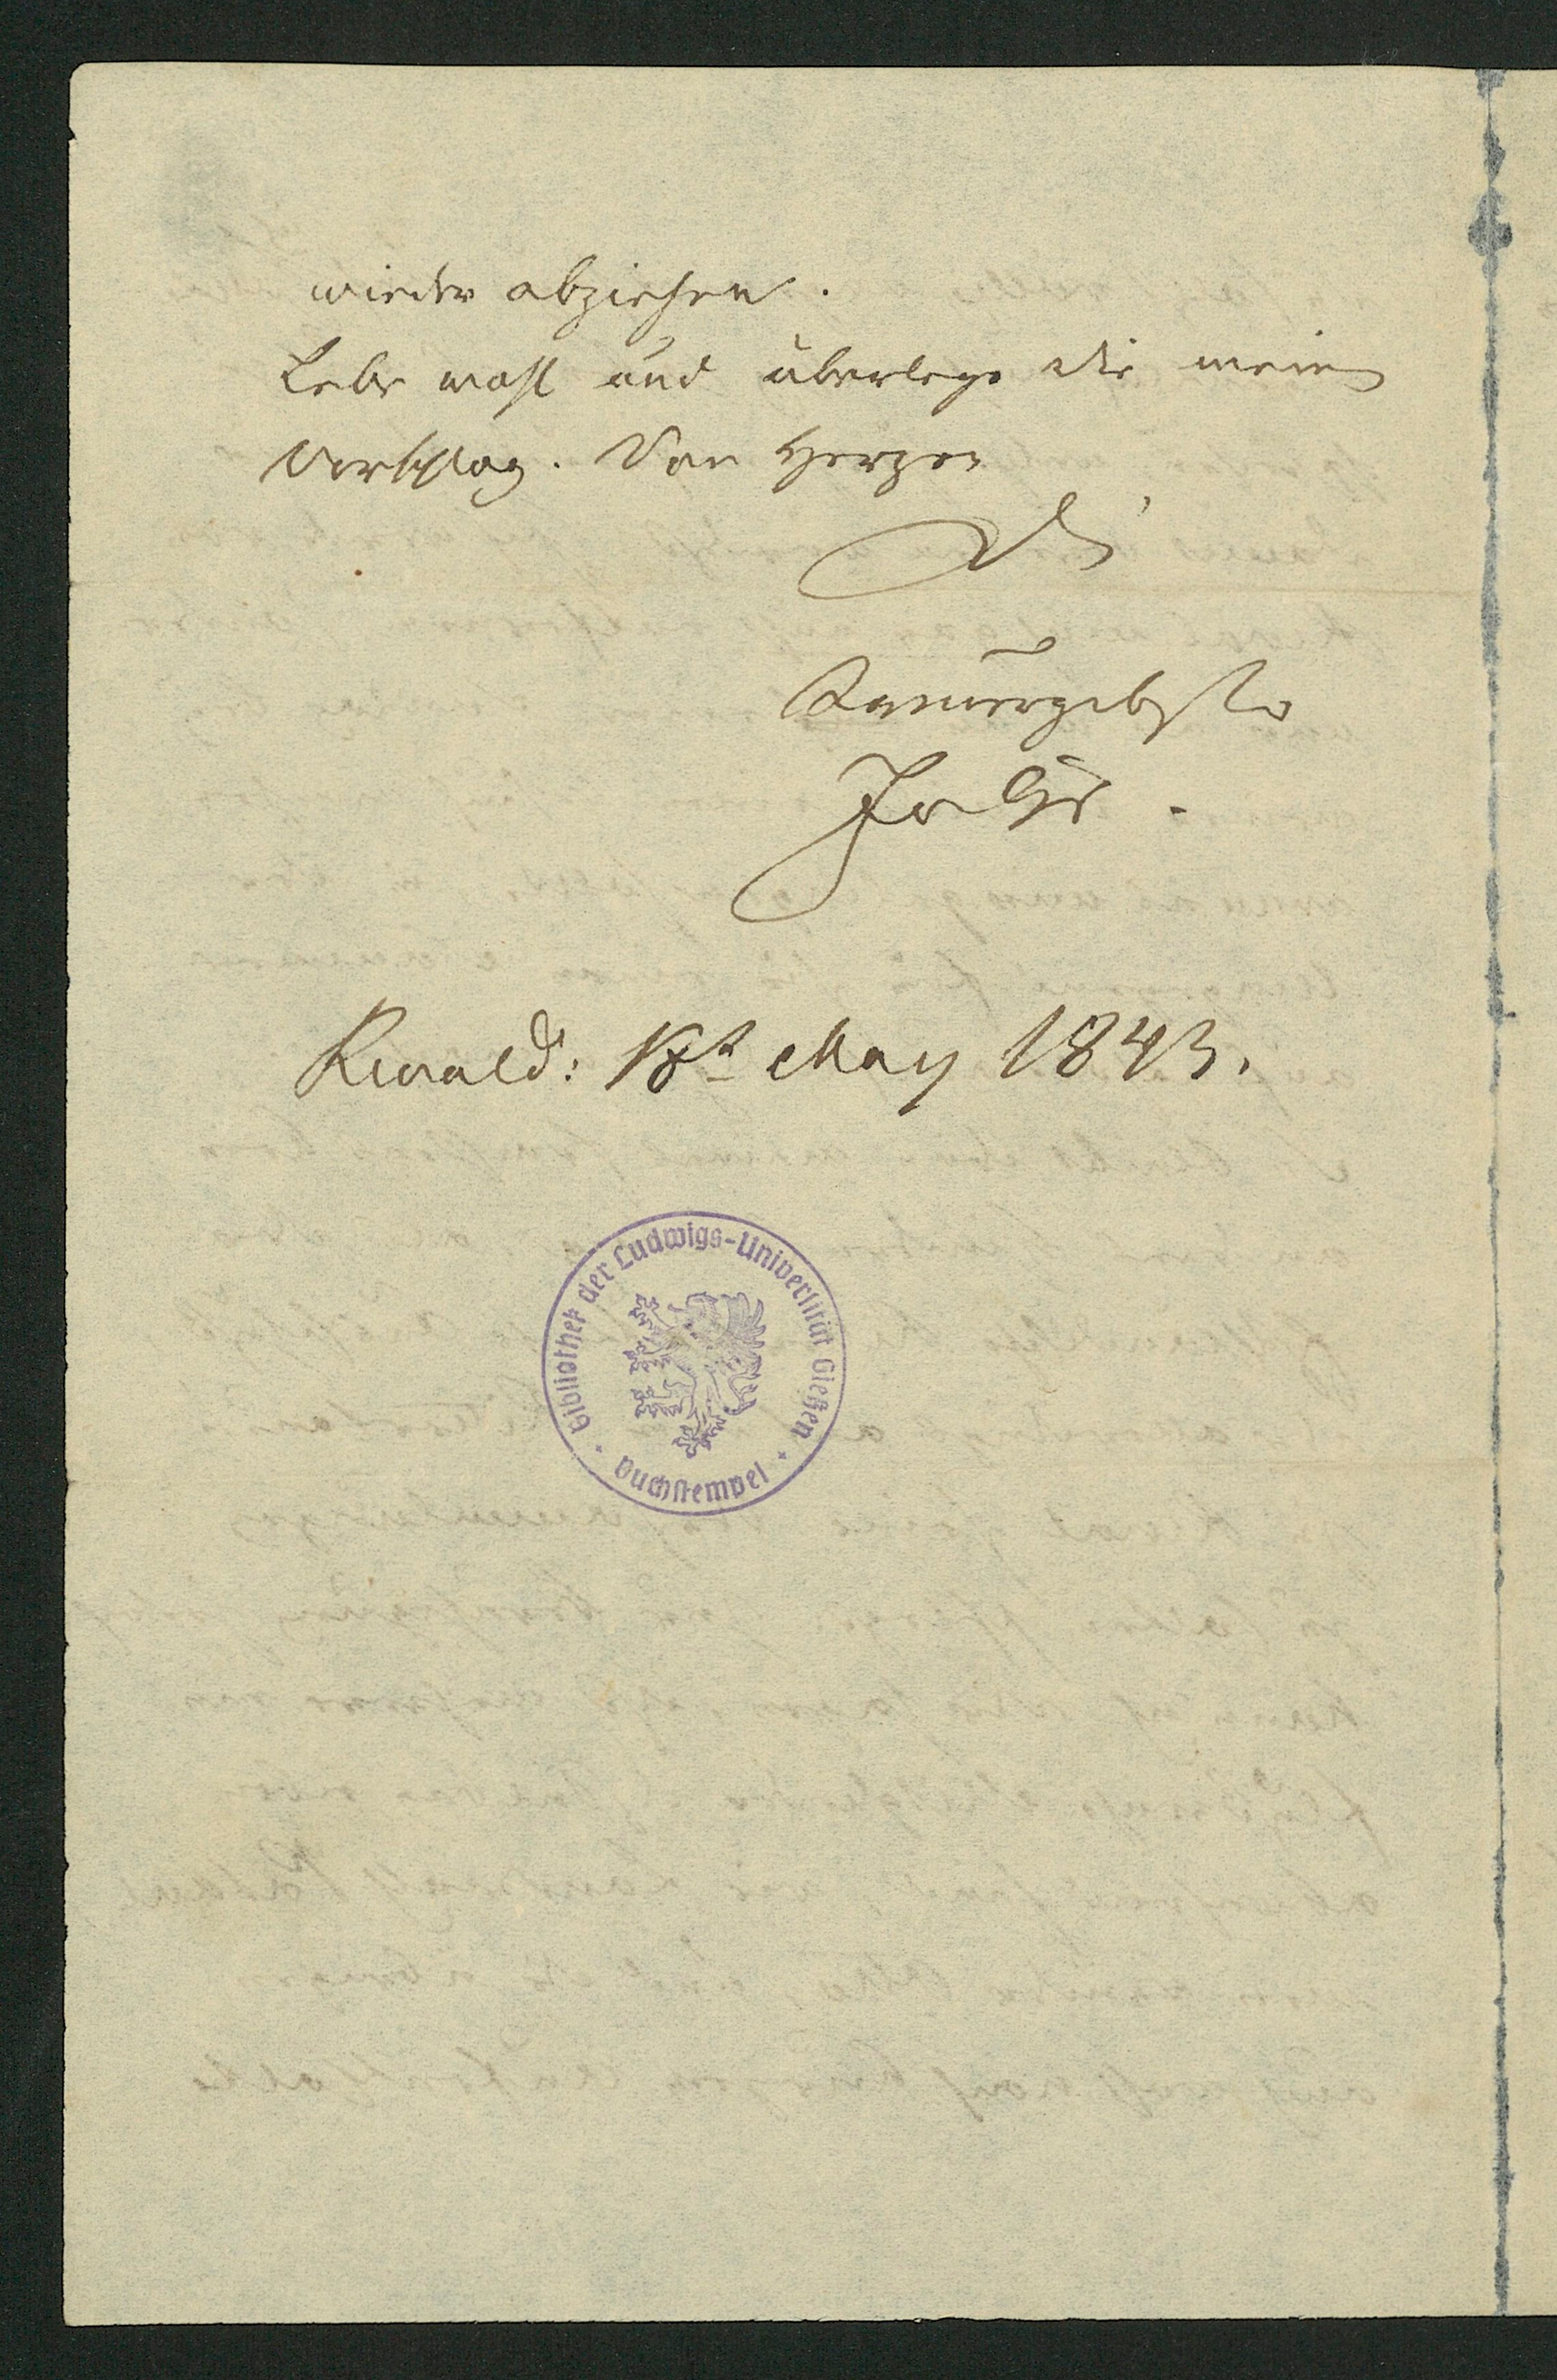 wieder abziehen.
Lebe wohl und überlege Dir meinen
Vorschlag. Von Herzen
Dein
treuergebenster
Rewald: 18t May 1843.
Bibliothek der Ludwigs-Universität Gießen
Buchstempel